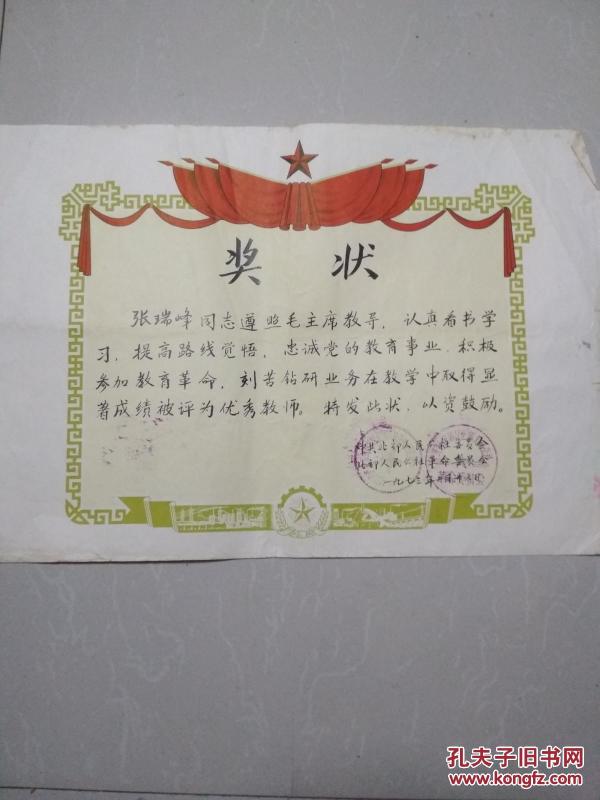 奖状
张瑞峰同志遵照毛主席教导，认真看书学
习，提高路线觉悟，忠诚党的教育事业，积极
参加教育革命，刻苦钻研业务在教学中取得显
著成绩被评为优秀教师。特发此状，以资鼓励。
中共北郭人民公社委员会
北郭人民公社革命委员会
一九七三年
孔夫子旧书网
www.kongfz.com